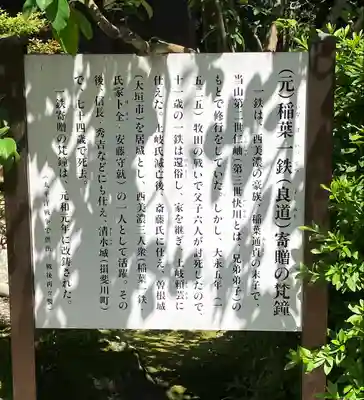 (元)稲葉一鉄(良道)寄贈の梵鐘
一鉄は、西美濃の豪族・稲葉通貞の末子で、
当山第二世仁岫(第三世快川とは、兄弟弟子)の
もとで修行をしていた。しかし、大永五年(一
五二五)牧田の戦いで父子六人が討死したので、
十一歳の一鉄は還俗し、家を継ぎ、土岐頼芸に
仕えた。土岐氏滅亡後、斎藤氏に仕え、曽根城
(大垣市)を居城とし、西美濃三人衆(稲葉一鉄・
氏家卜全・安藤守就)の一人として活躍。その
後、信長・秀吉などにも仕え、清水城(揖斐川町)
で、七十四歳で死去。
一鉄寄贈の梵鐘は、元和元年に改鋳された。
(太平洋戦争で供出、戦後再鋳)